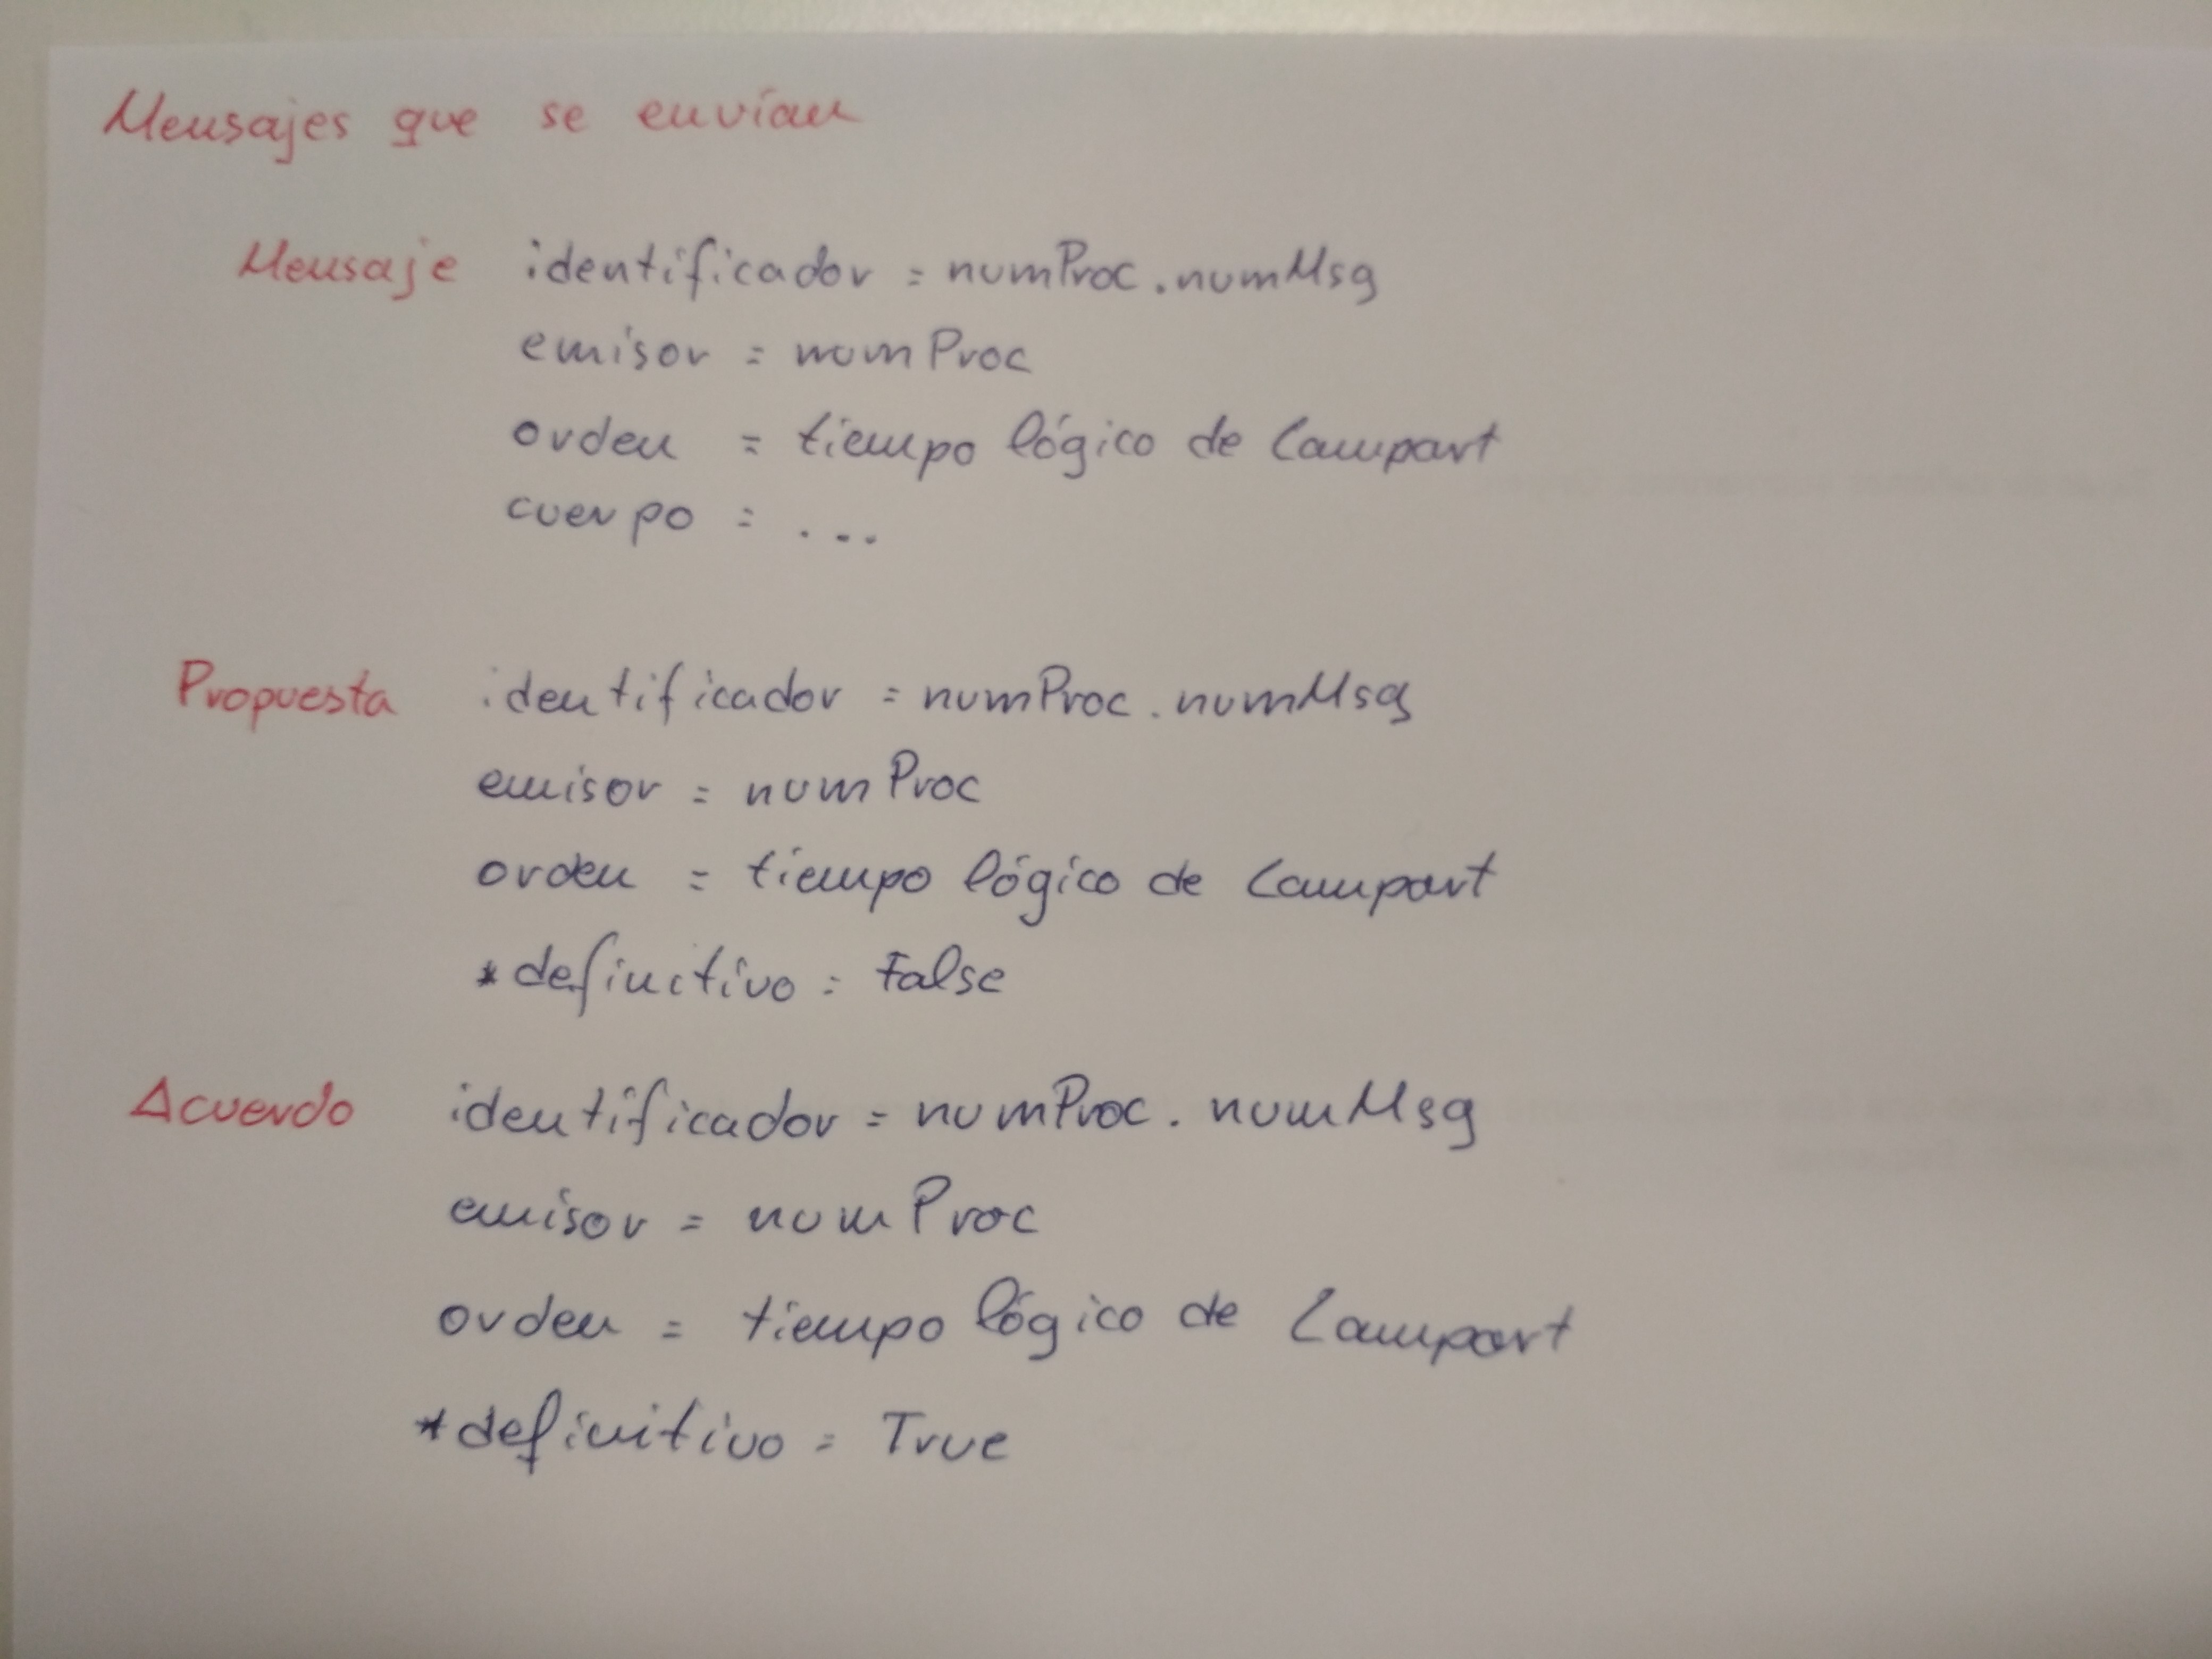 Mensajes que se envían
Mensaje identificador = numProc.numMsg
emisor = numProc
orden = tiempo lógico de Lampart
cuerpo = ...
Propuesta identificador = numProc.numMsg
emisor = numProc
orden = tiempo lógico de Lampart
*definitivo = False
Acuerdo identificador = numProc.numMsg
emisor = numProc
orden = tiempo lógico de Lampart
*definitivo = True